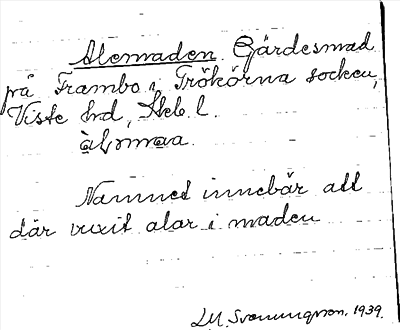 Alemaden. Gärdesmad
på Frambo i Trökörna socken,
Viste hd, Skb. l.
àlɔmaa.
Namnet innebär att
där vuxit alar i maden
M. Svenungsson. 1939.